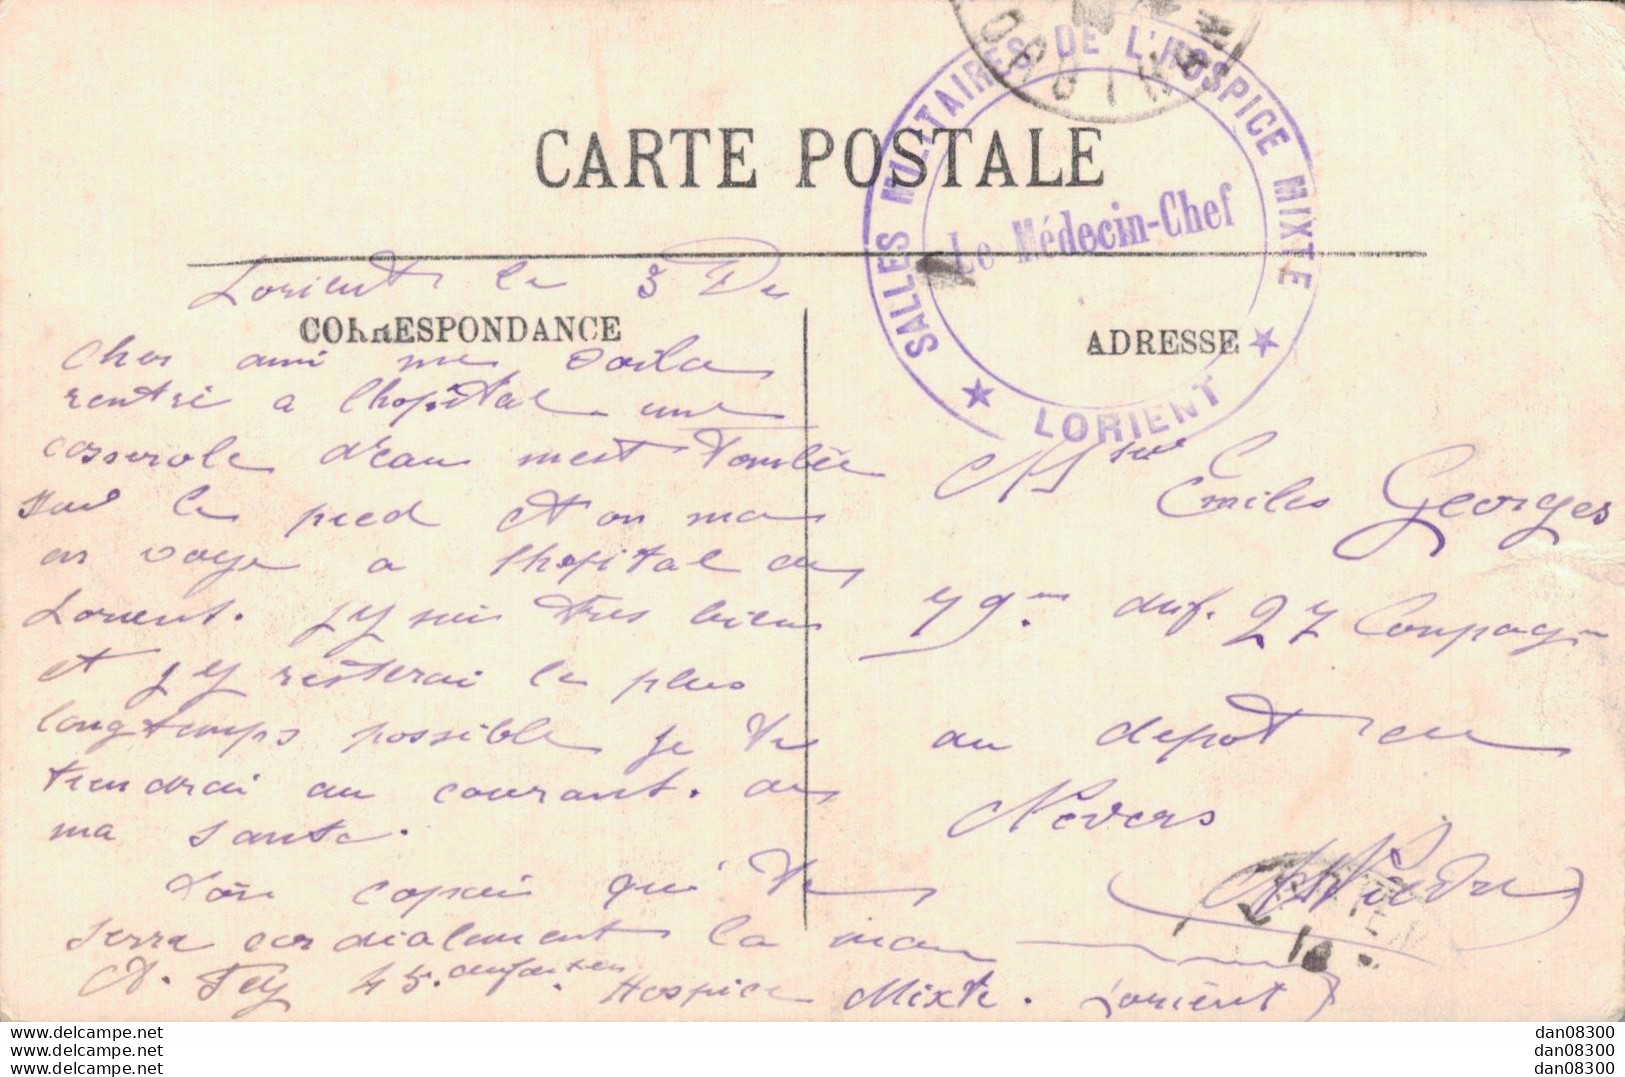 CARTE POSTALE
SALLES MILITAIRES DE L'HOSPICE MIXTE
Le Médecin-Chef
★ LORIENT ★
Lorient le 3
CORRESPONDANCE
ADRESSE
Cher ami me voila
rentré a lhopital une
casserole d'eau mest tombée
sur le pied et on ma
en voye a lhopital de
Lorient. jy suis tres bien
et j y resterai le plus
longtemps possible je te
tiendrai au courant. de
ma sante.
Ton copain qui te
serre cordialement la main
A. Fey 45. Hospice Mixte. Lorient
Emiles Georges
79em 27 Compagn
au depot
Nevers
dan08300
dan08300
dan08300
www.delcampe.net
www.delcampe.net
www.delcampe.net